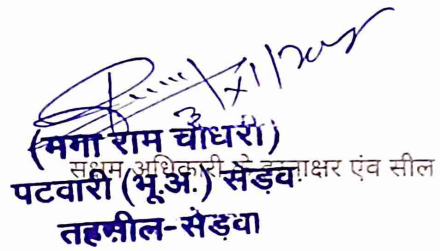 3/XI/20
(मगा राम चौधरी)
सक्षम अधिकारी के हस्ताक्षर एंव सील
पटवारी (भू.अ.) सेड़वा
तहसील-सेड़वा